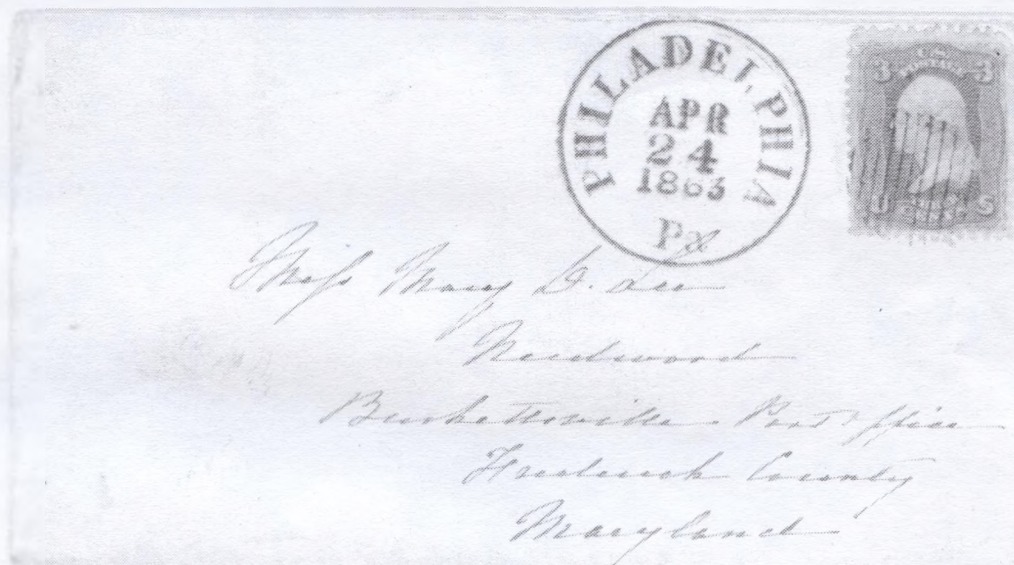 PHILADELPHIA
APR
24
1863
Pa
3 3
U S
Miss Mary D. Lee
Needwood
Burkettsville Post Office
Frederick County
Maryland